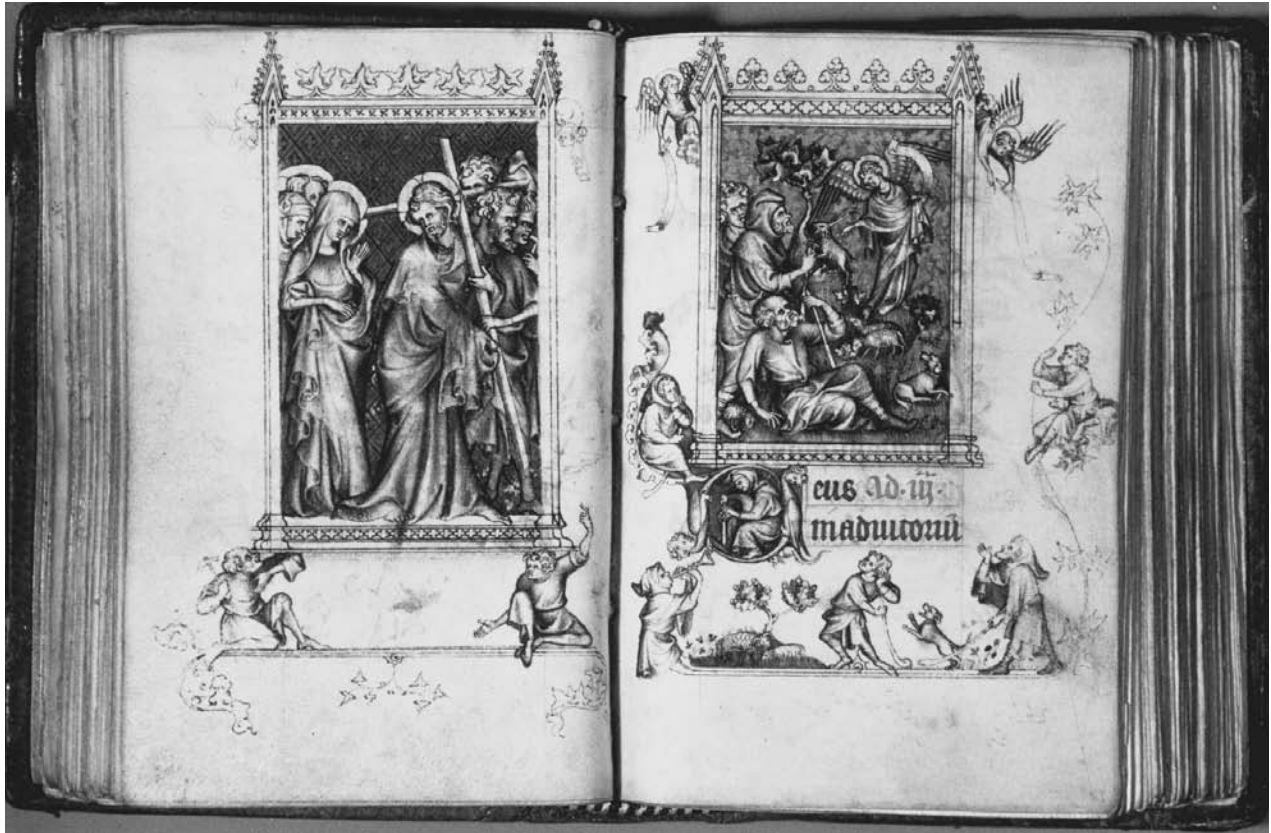 eus Ad·iij·
madiutoriū